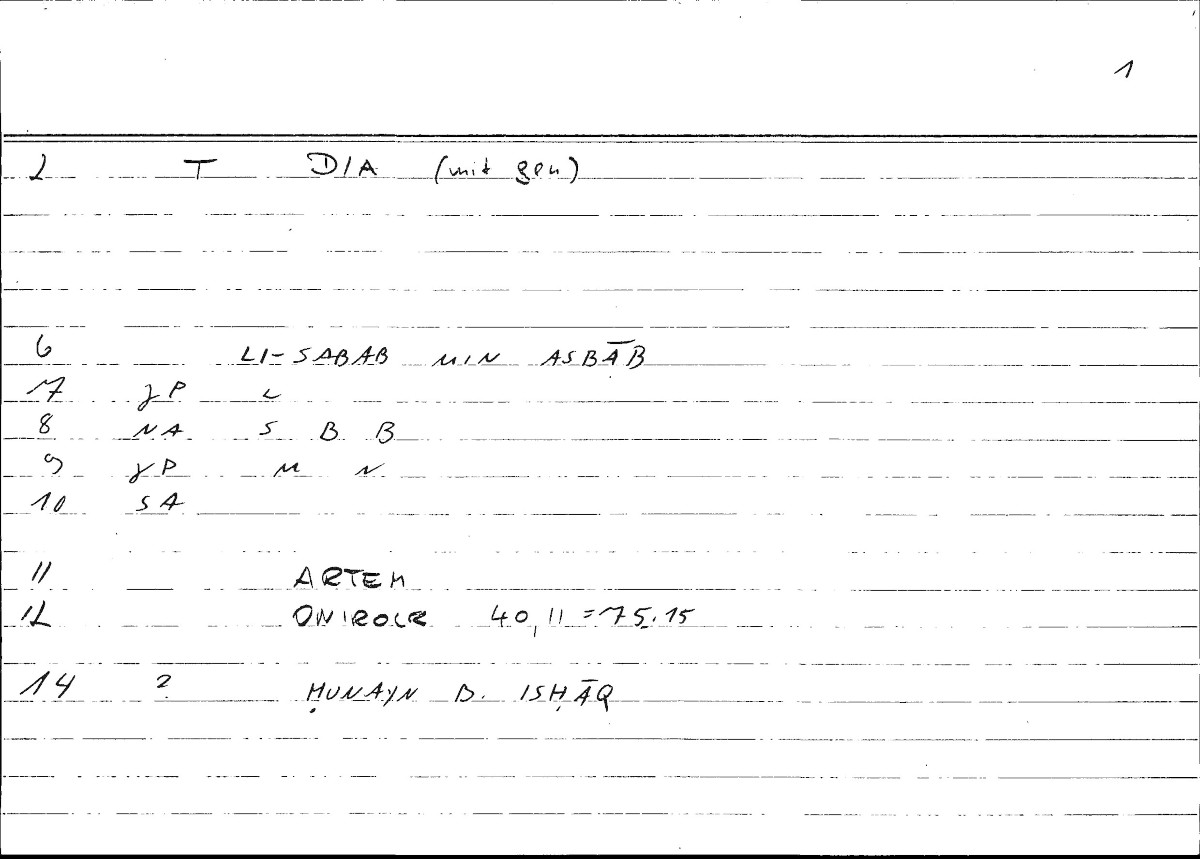 1
2 T DIA (mit gen)
6 LI-SABAB MIN ASBĀB
7 γP L
8 NA S B B
9 γP M N
10 SA
11 ARTEM
12 ONIROCR 40,11 = 75.15
14 2 ḤUNAYN B. ISḤĀQ